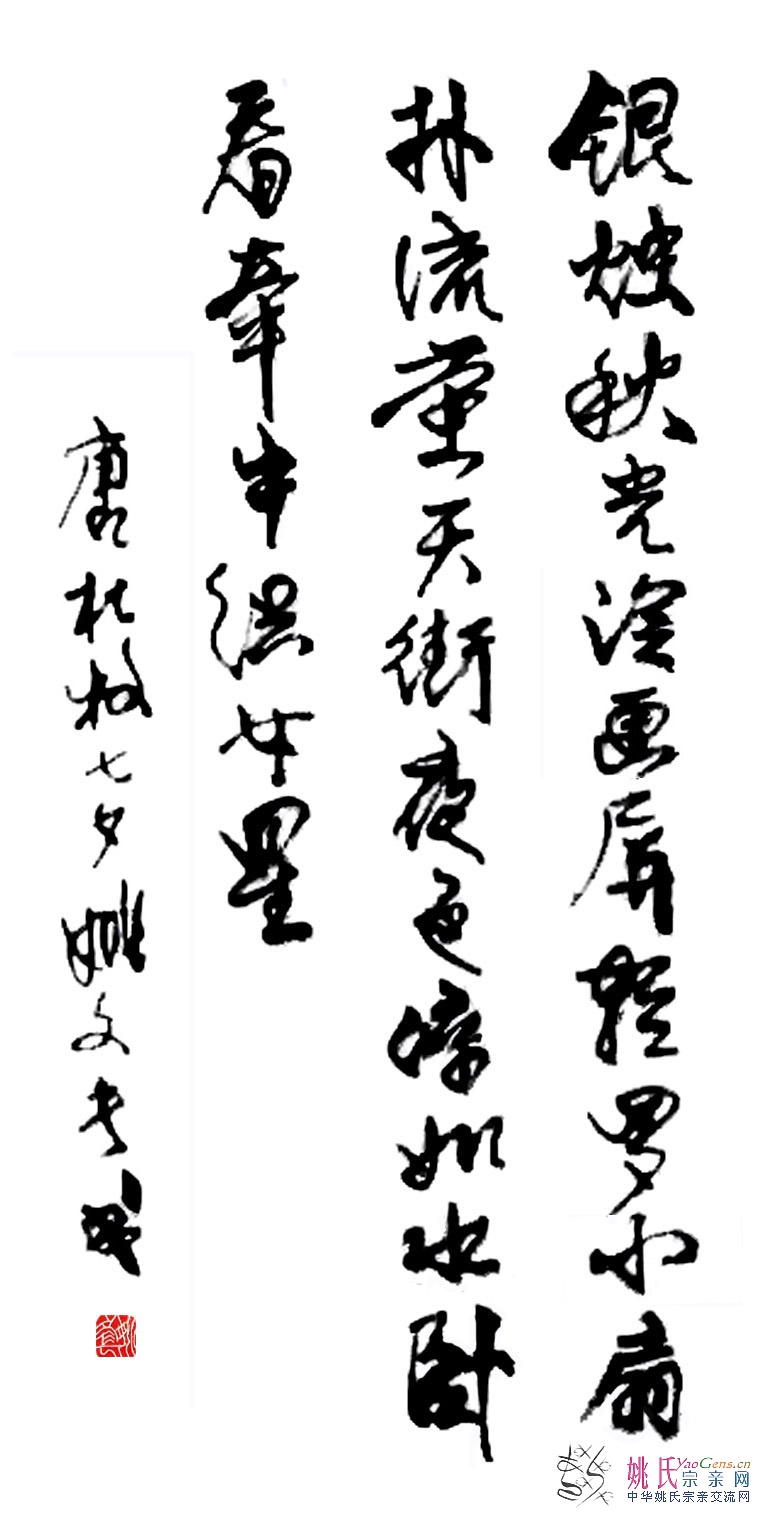 银烛秋光冷画屏轻罗小扇
扑流萤天街夜色凉如水卧
看牵牛织女星
唐杜牧七夕姚文奎
姚氏宗亲网
YaoGens.cn
中华姚氏宗亲交流网